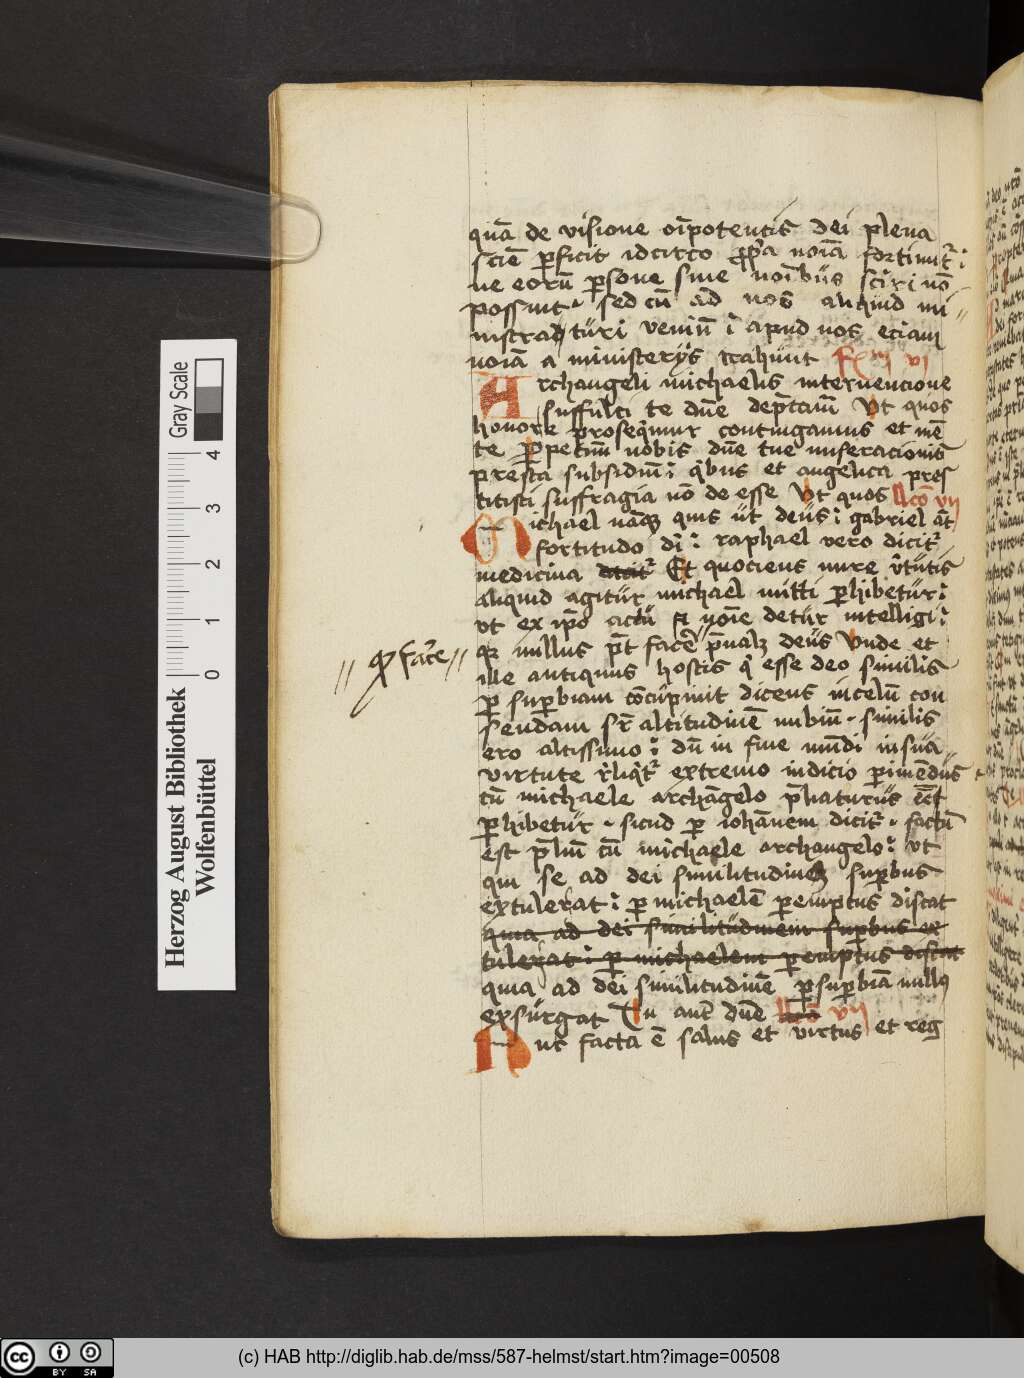 quā de visione oīpotentis dei plena
sciē ꝑficit idcirco ꝓpͥa noīa fortiunt᷑ :
ne eorū ꝑsone sine noībus sciri nō
possint sed cū ad nos aliquid mi
nistraturi veniūt apud nos eciam
noīa a ministerys trahunt Rm vi
Archangeli michaelis intervencione
suffulti te dn̄e dep̄cam̄ Vt quos
honore prosequimur contingamus et mē
te ꝑpetim nobis dn̄e tue miseracionis
p̄resta subsidiū : qͥbus et angelica pres
titisti suffragia nō de esse Vt quos Lcō vii
Michael namqꝫ quis ut deus : gabriel aūt
fortitudo di : raphael vero dicit᷑
medicina dicit᷑ Et quociens mire v̄tutis
aliquid agitur michael mitti ꝑhibetur :
vt ex ip̄o actu et noīe detur intelligi :
qꝫ nullus pt̄ facē p̄valꝫ deus Unde et
// qd facē //
ille antiquus hostis qͥ esse deo similis
ꝑ suꝑbiam cōcupiuit dicens in celū con
sendam sr̄ altitudinē nubiū similis
ero altissimo : dū in fine mūdi in sua
virtute r̄liqͥt᷑ extremo iudicio ꝑimēdus
cū michaele archāgelo p̄liaturus ēēt
ꝑhibetur sicud ꝑ iohānem dicit᷑ factū
est p̄liū cū michaele archangelo : vt
qui se ad dei similitudinē suꝑbus
extulerat : ꝑ michaelē ꝑemptus discat
quia ad dei similitudinem suꝑbus ex
tulerat : ꝑ michaelem ꝑemptus discat
quia ad dei similitudinē ꝑ suꝑbiā nullus
exsurgat Tu aut᷑ dn̄e Lcō vii
Nūc facta ē salus et virtus et reg
Herzog August Bibliothek
Wolfenbüttel
0 1 2 3 4
Gray Scale
cc BY SA
(c) HAB http://diglib.hab.de/mss/587-helmst/start.htm?image=00508